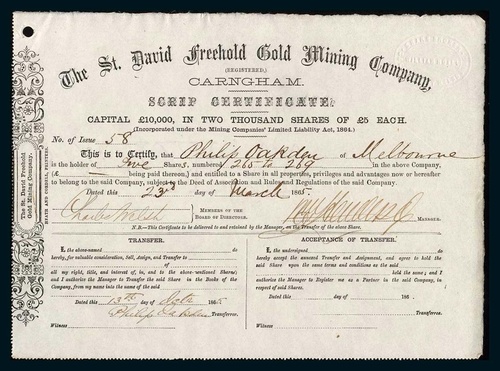 The St. David Freehold Gold Mining Company,
(REGISTERED),
CARNGHAM.
SCRIP CERTIFICATE.
CAPITAL £10,000, IN TWO THOUSAND SHARES OF £5 EACH.
(Incorporated under the Mining Companies' Limited Liability Act, 1864.)
No. of Issue 58
This is to Certify, that Philip Oakden of Melbourne
is the holder of Five Shares, numbered 265 to 269 in the above Company,
(£ being paid thereon,) and entitled to a Share in all properties, privileges and advantages now or hereafter
to belong to the said Company, subject to the Deed of Association and Rules and Regulations of the said Company.
Dated this 23rd day of March 1865.
Charles Welsh
MEMBERS OF THE
BOARD OF DIRECTORS.
MANAGER.
N.B.—This Certificate to be delivered to and retained by the Manager, on the Transfer of the above Share.
The St. David Freehold
Gold Mining Company.
TRANSFER.
I, the above-named do
hereby, for valuable consideration, Sell, Assign, and Transfer to
of
all my right, title, and interest of, in, and to the above-mentioned Share;
and I authorise the Manager to Transfer said Share in the Books of the
Company, from my name into the name of the said
Dated this 13th day of 186
Philip Oakden Transferror.
Witness
ACCEPTANCE OF TRANSFER.
I, the undersigned do
hereby accept the annexed Transfer and Assignment, and agree to hold the
said Share upon the same terms and conditions as the said
held the same; and I
authorise the Manager to Register me as a Partner in the said Company, in
respect of said Shares.
Dated this day of 186 .
Transferree.
Witness